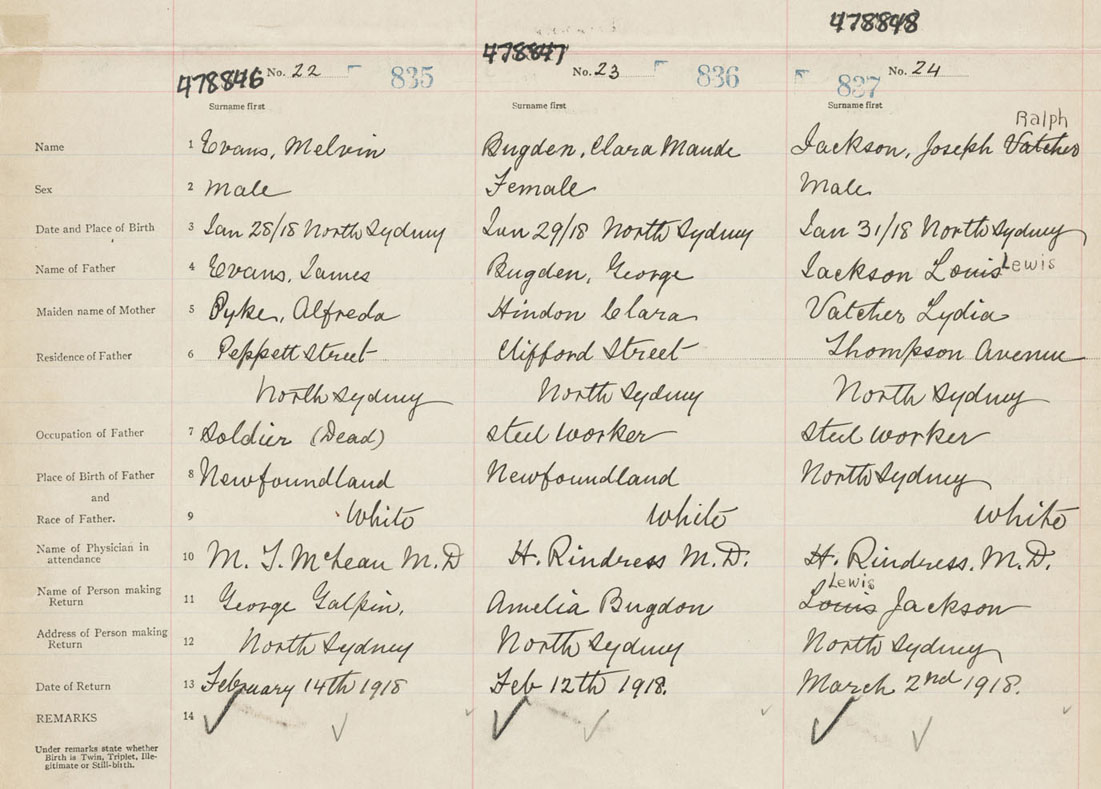 478848
478847
478846 No. 22 835 No. 23 836 837 No. 24
Surname first Surname first Surname first
Ralph
Name 1 Evans, Melvin Bugden, Clara Maude Jackson, Joseph Vatcher
Sex 2 Male Female Male
Date and Place of Birth 3 Jan 28/18 North Sydney Jan 29/18 North Sydney Jan 31/18 North Sydney
Name of Father 4 Evans, James Bugden, George Jackson Louis Lewis
Maiden name of Mother 5 Pyke, Alfreda Hindon Clara Vatcher Lydia
Residence of Father 6 Peppett Street Clifford Street Thompson Avenue
North Sydney North Sydney North Sydney
Occupation of Father 7 Soldier (Dead) Steel worker Steel worker
Place of Birth of Father 8 Newfoundland Newfoundland North Sydney
and
Race of Father. 9 White White White
Name of Physician in
attendance 10 M. T. McLean M.D H. Rindress M.D. H. Rindress. M.D.
Lewis
Name of Person making
Return 11 George Galpin, Amelia Bugdon Louis Jackson
Address of Person making
Return 12 North Sydney North Sydney North Sydney
Date of Return 13 February 14th 1918 Feb 12th 1918. March 2nd 1918.
REMARKS 14
Under remarks state whether
Birth is Twin, Triplet, Ille-
gitimate or Still-birth.